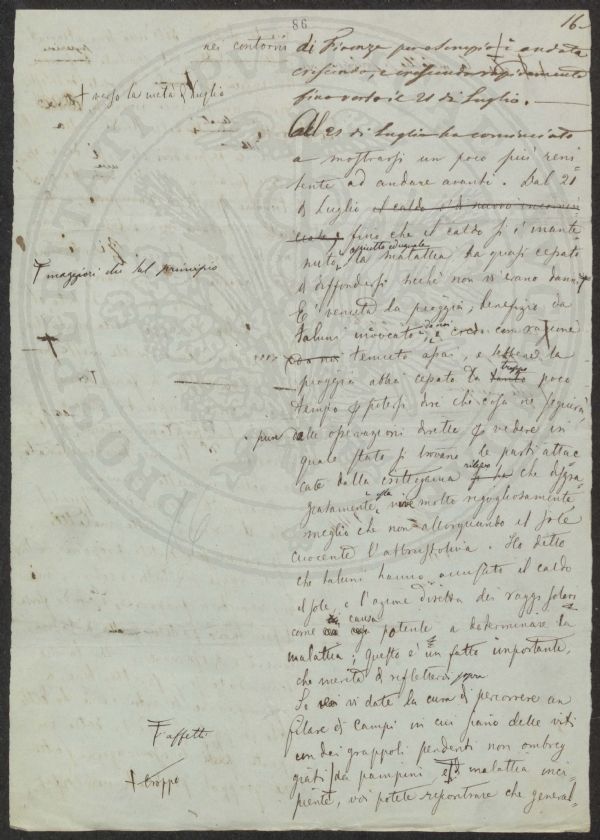 86
16
nei contorni di Firenze per esempio è andata
crescendo, e crescendo rapidamente
+ verso la metà di Luglio
fino verso il 21 di Luglio.
Al 21 di Luglio ha cominciato
a mostrarsi un poco più
sistente ad andare avanti. Dal 21
di Luglio il caldo
fino che il caldo si è mante
nuto, la malattia ha quasi cessato
maggiori che sul principio
di diffondersi sicchè non vi erano danni
E' venuta la pioggia, benefizio da
taluni invocato, e da noi credo con ragione
con noi temuto assai, e sebbene la
pioggia abbia cessato da troppo poco
tempo p potersi dire che cosa ne seguirà,
pure dalle operazioni dirette p vedere in
quale stato si trovano le parti attac
cate dalla crittogama che disgra
ziatamente vive molto rigogliosamente
meglio che non allorquando il sole
cuocente l'abbrustoliva. Ho detto
che taluni hanno accusato il caldo
il sole, e l'azione diretta dei raggi solari
come causa potente a determinare la
malattia; questo è un fatto importante,
che merita di rifletterci sopra
Se vi date la cura di percorrere un
filare di campi in cui siano delle viti
affetti
con dei grappoli pendenti non ombreg
giati dai pampini malattia inci
+ troppo
piente, voi potete riscontrare che general